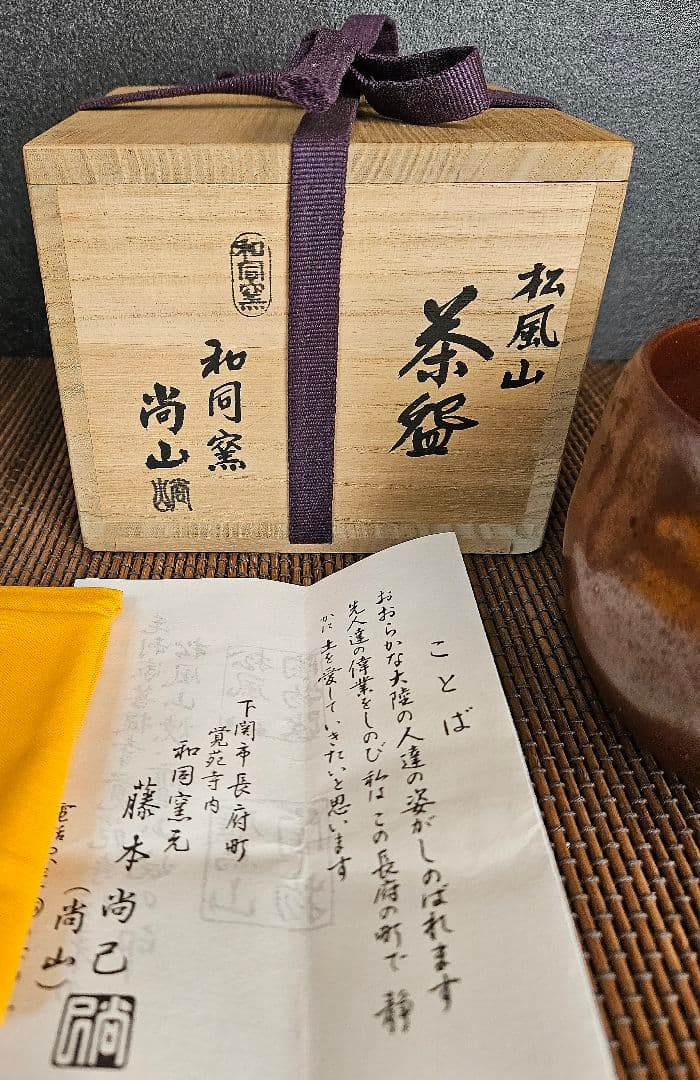 松風山
茶盌
和同窯
和同窯
尚山
ことば
おおらかな大陸の人達の姿がしのばれます
先人達の偉業をしのび 私はこの長府の町で 静
かに土を愛していきたいと思います
下関市長府町
覚苑寺内
和同窯元
藤本尚己
(尚山)